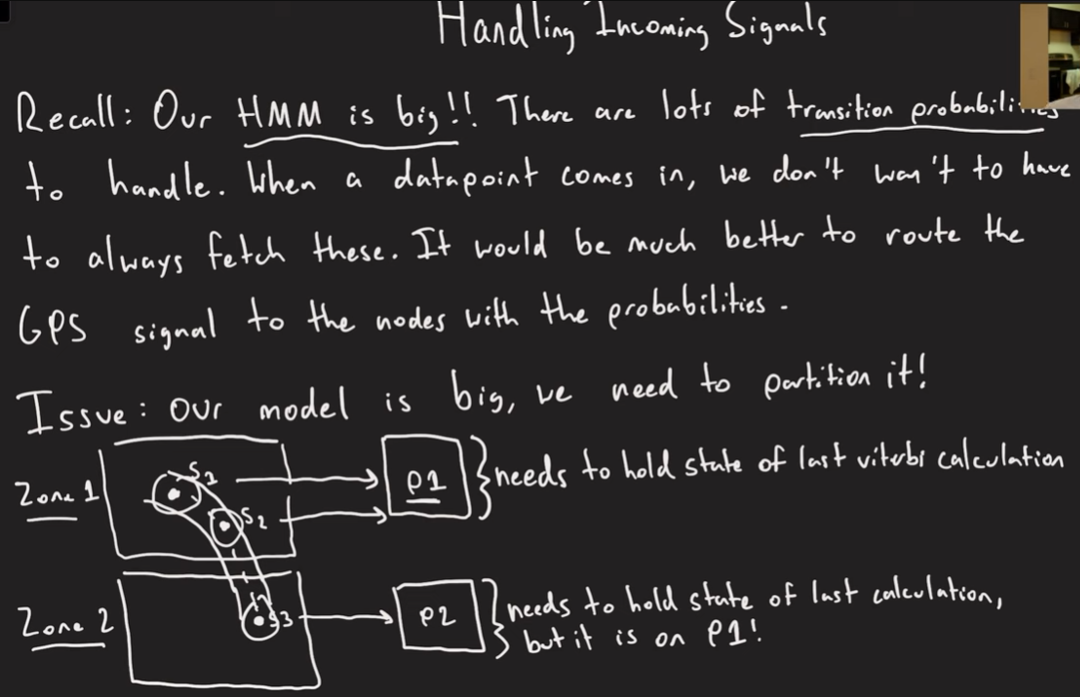 Handling Incoming Signals
Recall: Our HMM is big!! There are lots of transition
to handle. When a datapoint comes in, we don't wan't to have
to always fetch these. It would be much better to route the
GPS signal to the nodes with the probabilities.
Issue: our model is big, we need to partition it!
Zone 1 S2 S2 P1 needs to hold state of last viterbi calculation
Zone 2 S3 P2 needs to hold state of last calculation,
but it is on P1!